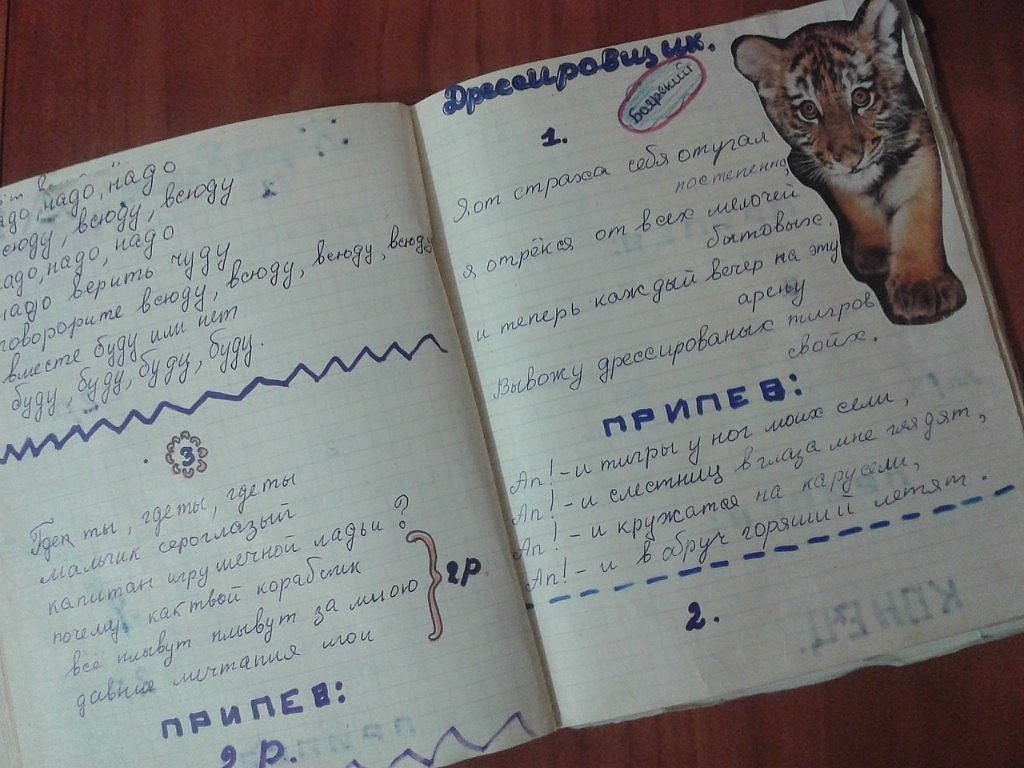 надо, надо
всюду, всюду, всюду
надо, надо, надо
надо верить чуду
говорорите всюду, всюду, всюду, всюду
вместе буду или нет
буду, буду, буду, буду.
3
Где ты, где ты, где ты
мальчик сероглазый
капитан игрушечной ладьи?
почему, как твой кораблик
всё плывут плывут за мною
давние мечтания мои
2 р
ПРИПЕВ:
2 р.
Дрессировщик.
Боярский
1.
Я от страха себя отугал
постепенно,
я отрёкся от всех мелочей
бытовых.
и теперь каждый вечер на эту
арену
Вывожу дрессированых тигров
свойх.
ПРИПЕВ:
Ап! - и тигры у ног моих сели,
Ап! - и слестниц в глаза мне глядят,
Ап! - и кружатся на карусели,
Ап! - и в обруч горящий летят.
2.
КОНЕЦ.